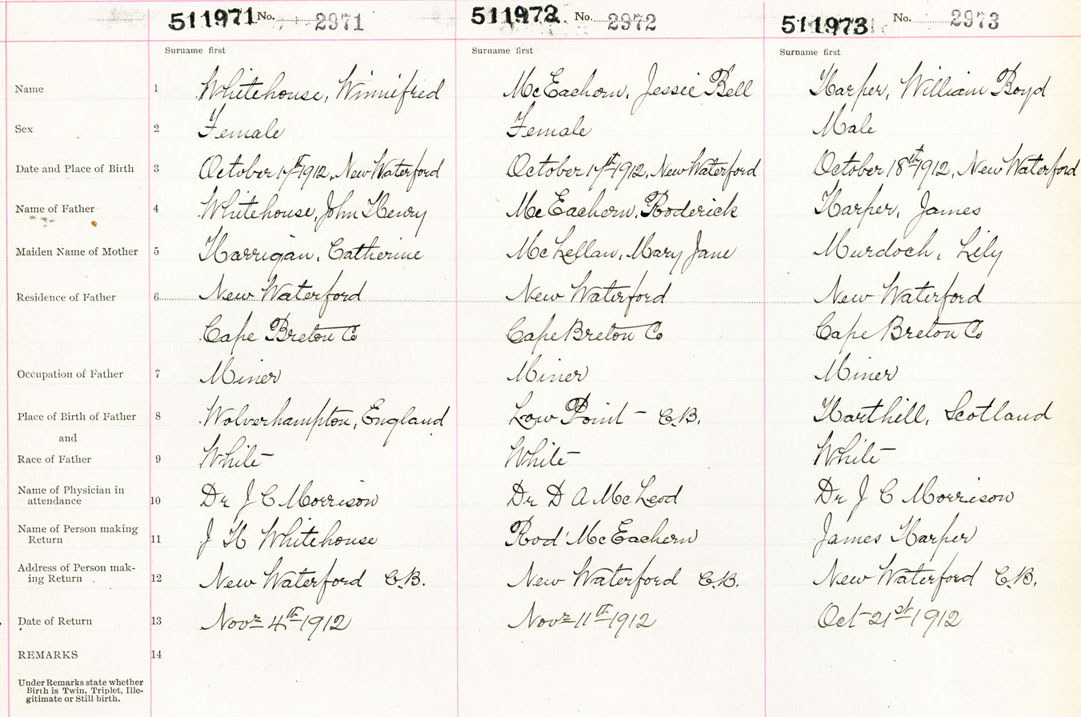 511971 No. 2971 511972 No. 2972 511973 No. 2973
Surname first Surname first Surname first
Name 1 Whitehouse, Winnifred McEachern, Jessie Bell Harper, William Boyd
Sex 2 Female Female Male
Date and Place of Birth 3 October 17th 1912, New Waterford October 17th 1912, New Waterford October 18th 1912, New Waterford
Name of Father 4 Whitehouse, John Henry McEachern, Roderick Harper, James
Maiden Name of Mother 5 Harrigan, Catherine McLellan, Mary Jane Murdoch, Lily
Residence of Father 6 New Waterford New Waterford New Waterford
Cape Breton Co Cape Breton Co Cape Breton Co
Occupation of Father 7 Miner Miner Miner
Place of Birth of Father 8 Wolverhampton, England Low Point - C.B. Harthill, Scotland
and
Race of Father 9 White White White
Name of Physician in
attendance 10 Dr J C Morrison Dr D A McLeod Dr J C Morrison
Name of Person making
Return 11 J H Whitehouse Rod' McEachern James Harper
Address of Person mak-
ing Return 12 New Waterford C.B. New Waterford C.B. New Waterford C.B.
Date of Return 13 Novr 4th 1912 Novr 11th 1912 Oct 21st 1912
REMARKS 14
Under Remarks state whether
Birth is Twin, Triplet, Ille-
gitimate or Still birth.